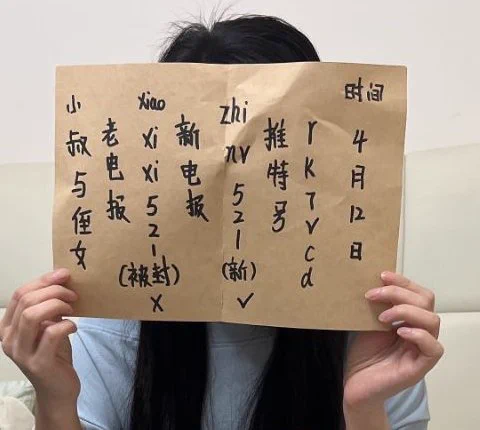 小叔与侄女
老电报
xiaoxixi521(被封)X
新电报
zhinv521(新)✓
推特号
rK7vcd
时间4月12日